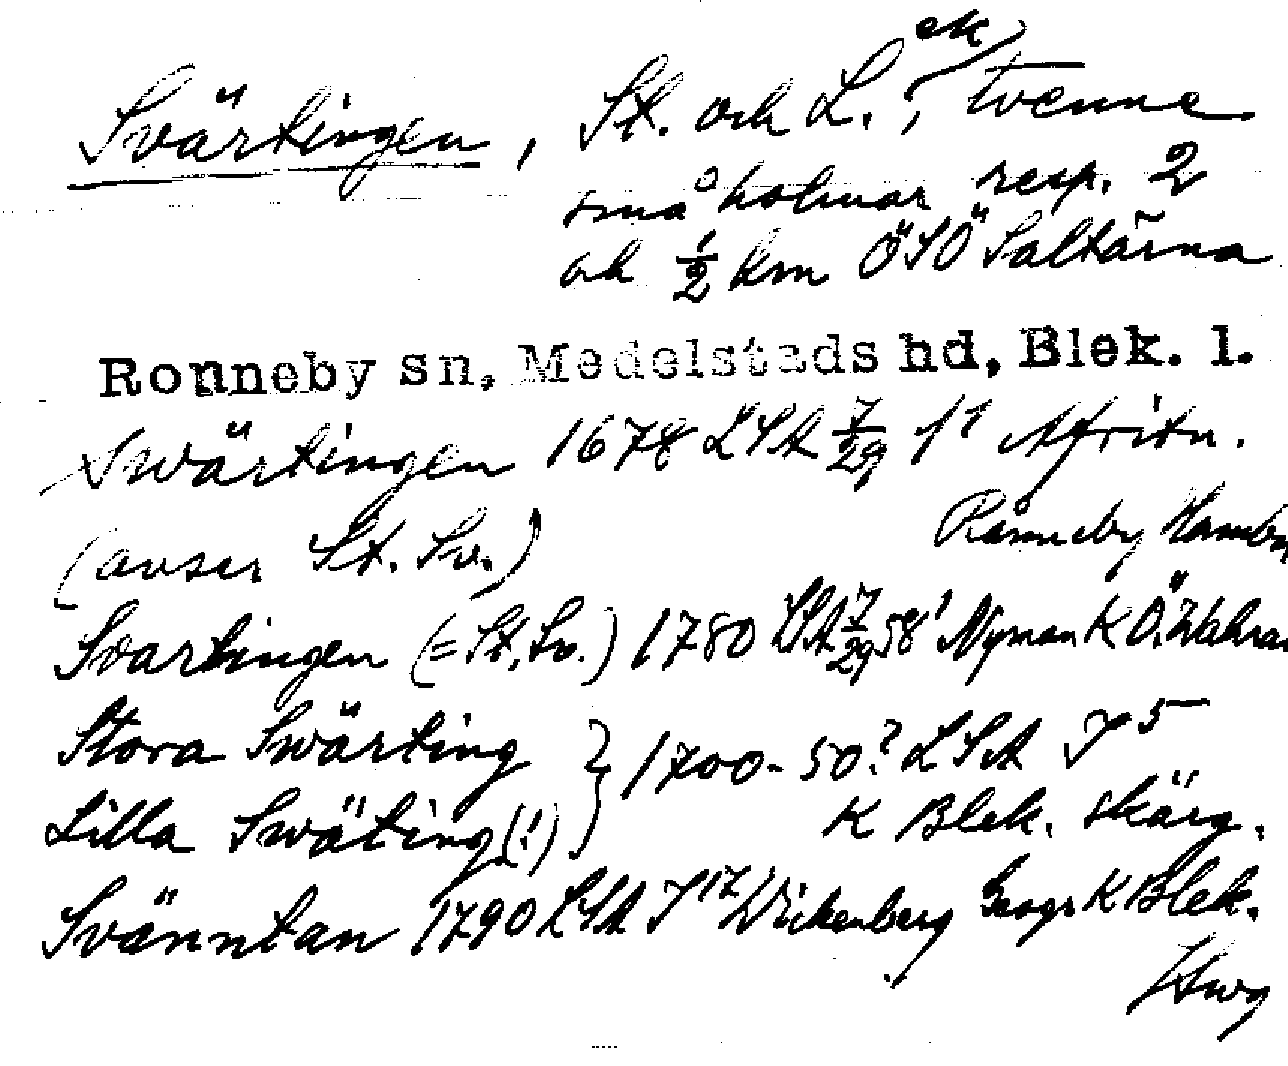 Svärtingen, St. och L., ek
tvenne
små holmar resp. 2
och 1/2 km ÖSÖ Saltärna
Ronneby sn, Medelstads hd, Blek. l.
Swärtingen 1678 LSA 7/29 1¹ Afritn.
(avser St. Sv.) Rånneby Hambn
Svartingen (= St. Sv.) 1780 LSA 7/29 58¹ Nyman K Ö.
Stora Swärting } 1700-50? LSA J⁵
Lilla Swäting (!) } K Blek. skärg.
Svänntan 1790 LSA J¹⁷ Wickenberg Geogr K Blek.